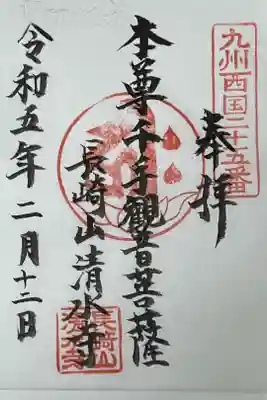 九州西国二十五番
奉拝
本尊千手観音菩薩
長崎山清水寺
令和五年二月十二日
長崎山
清水寺